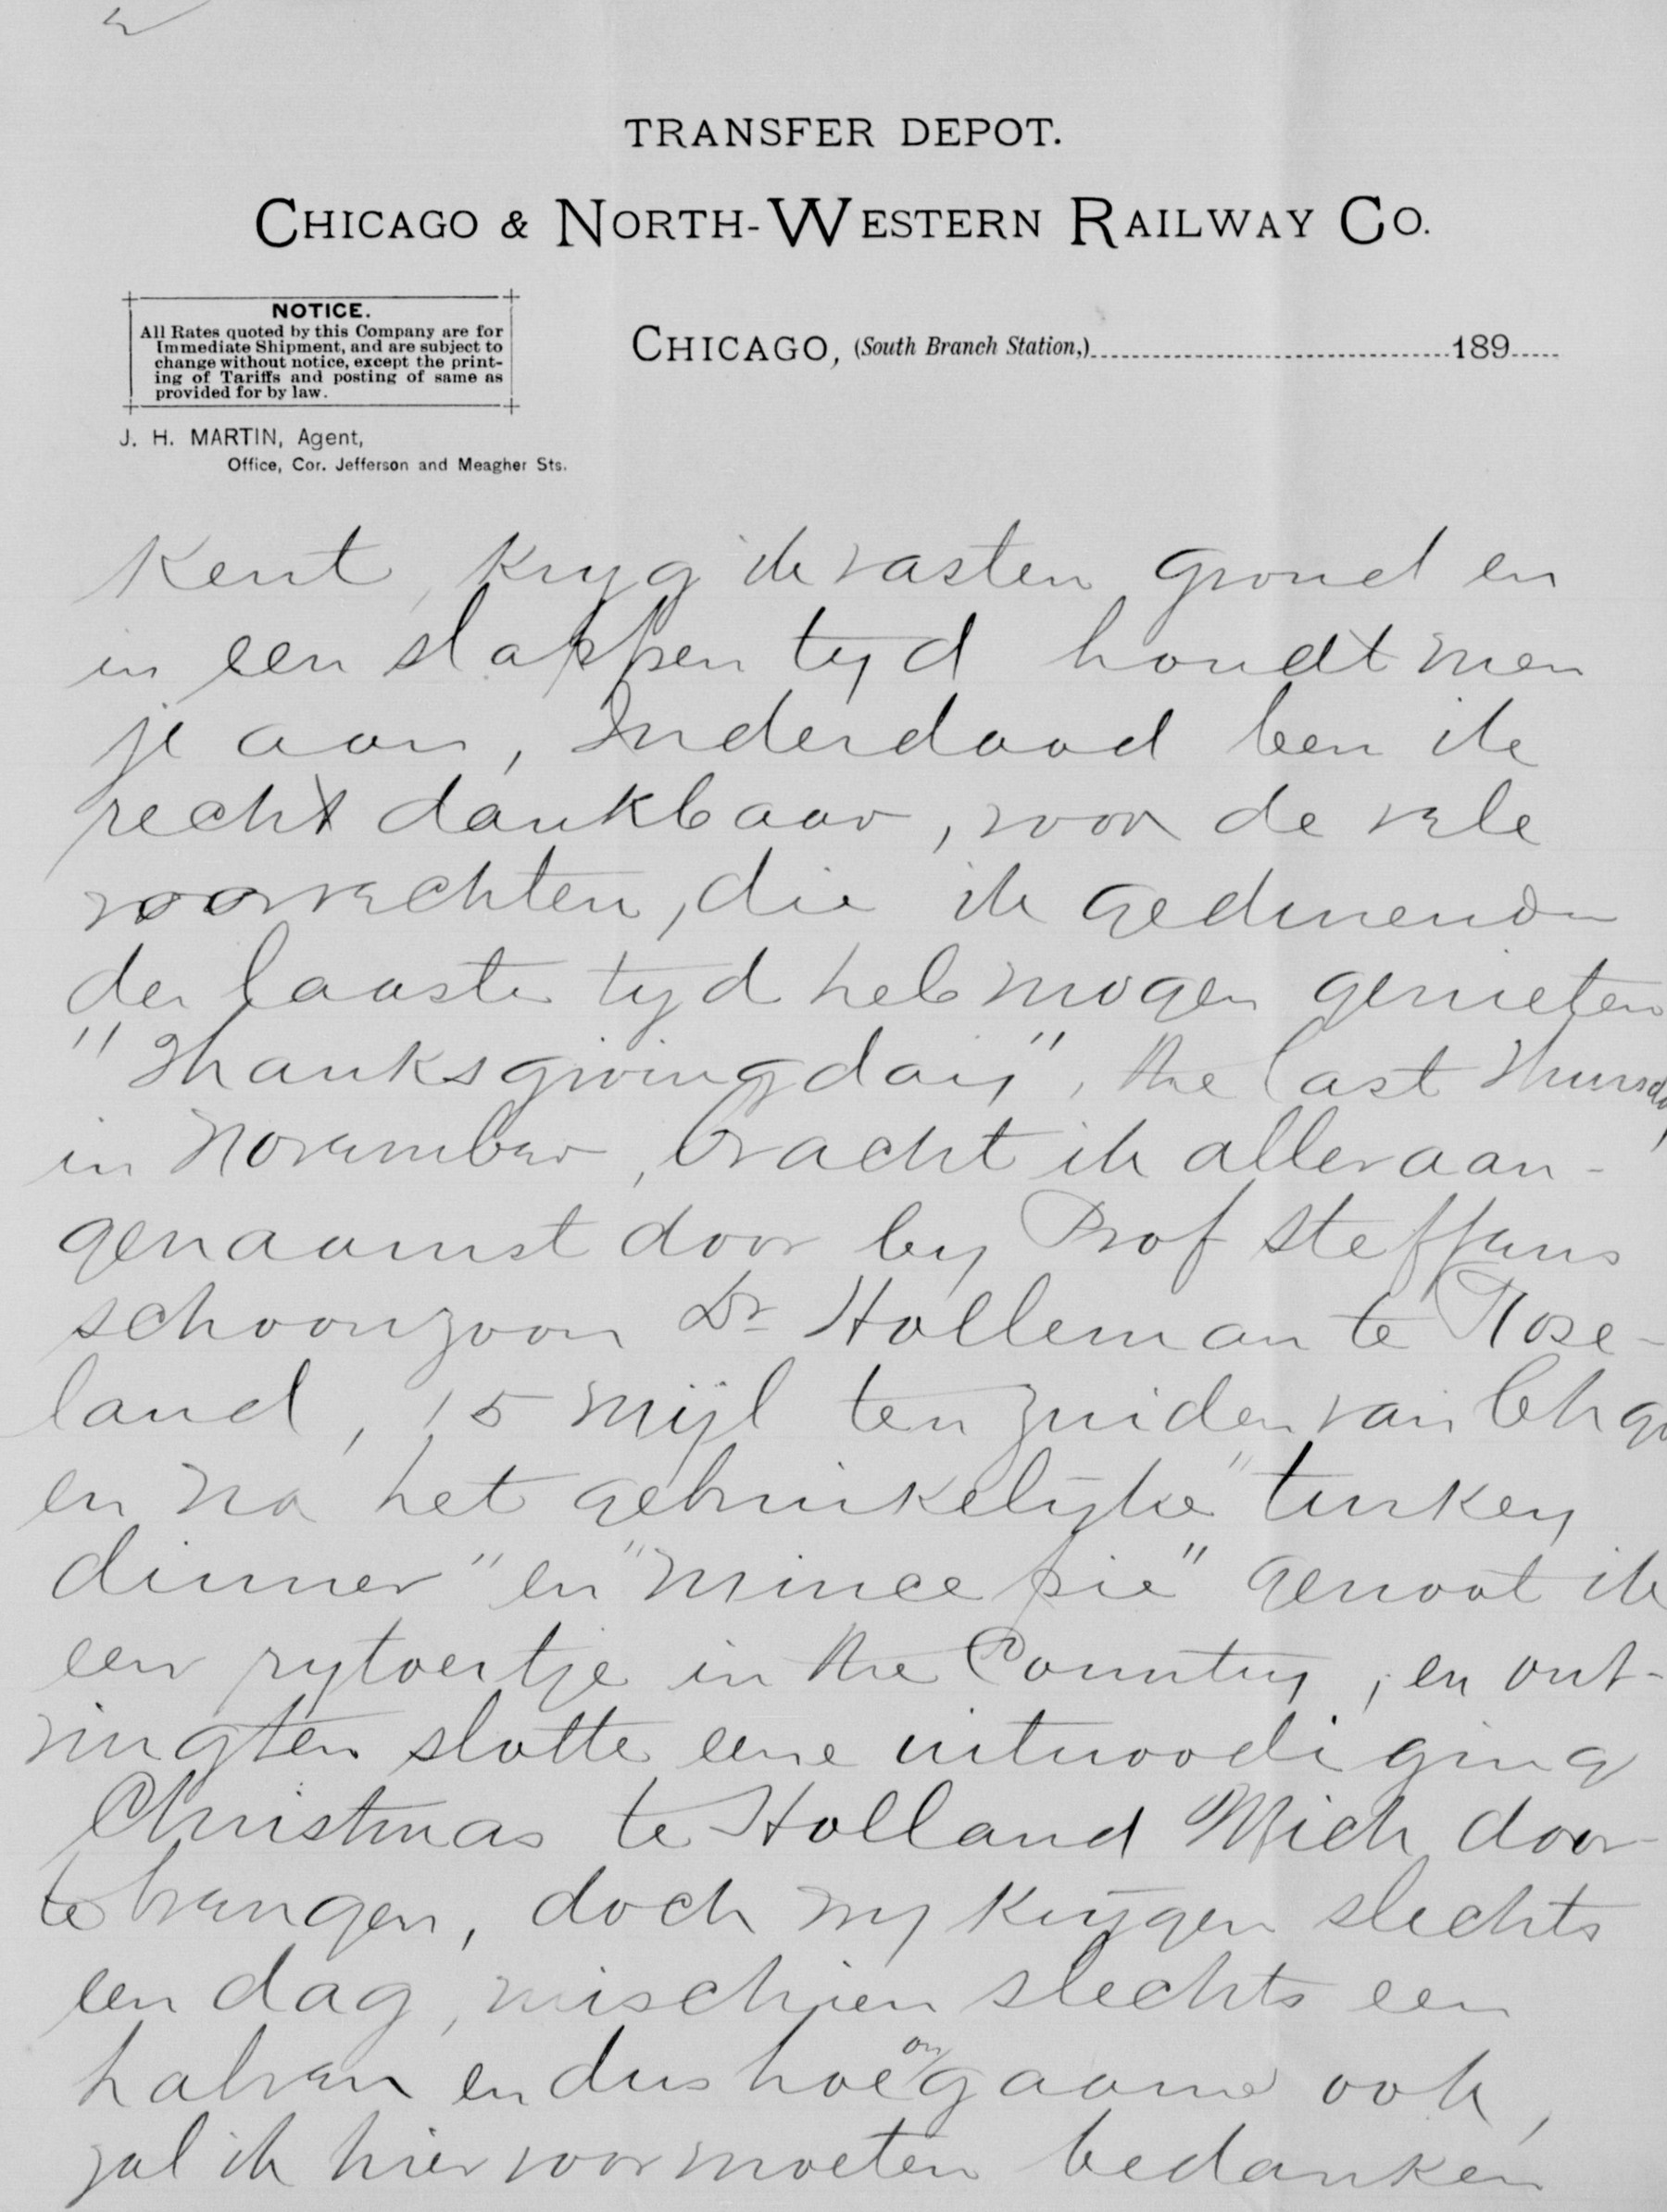 TRANSFER DEPOT.
CHICAGO & NORTH-WESTERN RAILWAY CO.
NOTICE.
All Rates quoted by this Company are for
Immediate Shipment, and are subject to
change without notice, except the print-
ing of Tariffs and posting of same as
provided for by law.
CHICAGO, (South Branch Station,) 189
J. H. MARTIN, Agent,
Office, Cor. Jefferson and Meagher Sts.
kent, kryg ik vasten grond en
in een slappen tyd houdt men
je aan, Inderdaad ben ik
recht dankbaar, voor de vele
voorrechten, die ik gedurende
den laaste tyd heb mogen genieten
"Thanksgivingday", the last Thursday
in November, bracht ik alleraan-
genaamst door by Prof Steffens
schoonzoon Dr Holleman te Rose-
land, 15 mijl ten zuiden van Chgo
en na het gebruikelijke "turkey
dinner" en "mince pie" genoot ik
een rytoertje in the Country, en ont-
ving ten slotte eene uitnoodiging
Christmas te Holland Mich door-
te brengen, doch wy krijgen slechts
een dag, mischien slechts een
halven en dus hoe gaarne ook,
zal ik hiervoor moeten bedanken